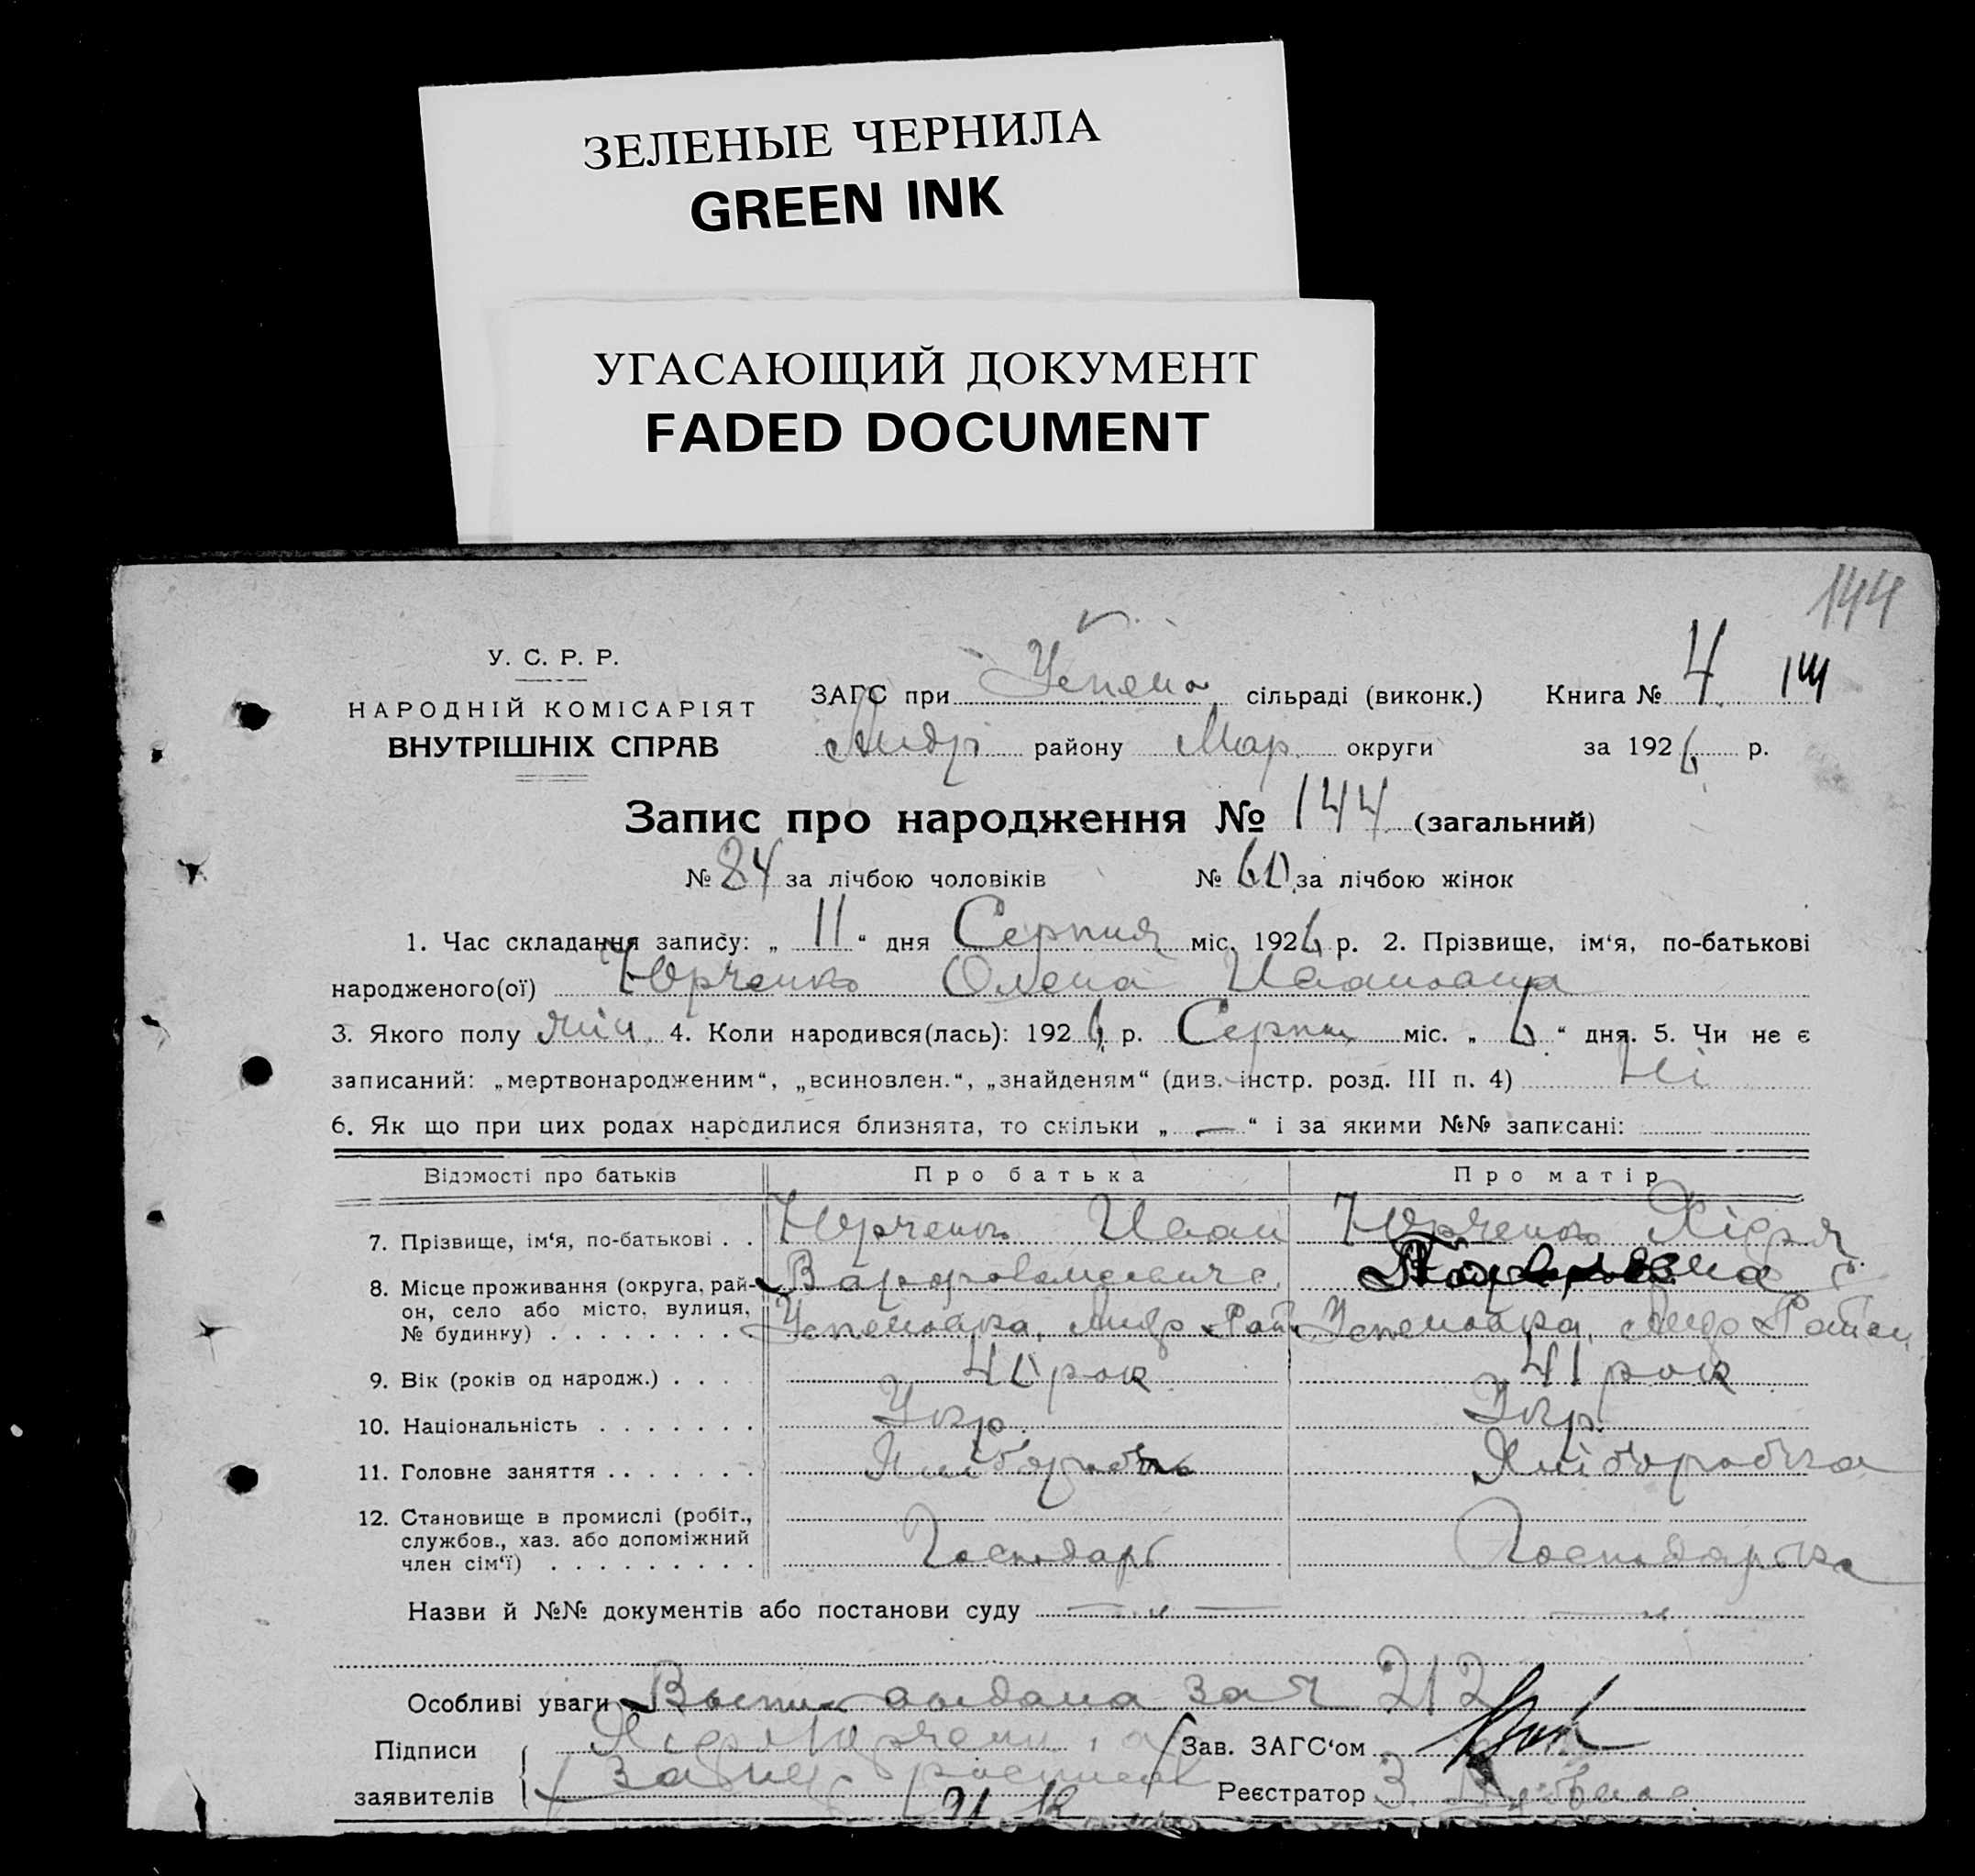 ЗЕЛЕНЫЕ ЧЕРНИЛА
GREEN INK
УГАСАЮЩИЙ ДОКУМЕНТ
FADED DOCUMENT
144
У. С. Р. Р.
НАРОДНІЙ КОМІСАРІЯТ
ВНУТРІШНІХ СПРАВ
ЗАГС при Успена сільраді (виконк.) Книга № 4 144
Андр району Мар. округи за 1926 р.
Запис про народження № 144 (загальний)
№ 84 за лічбою чоловіків № 60 за лічбою жінок
1. Час складання запису: „ 11 “ дня Серпня міс. 1926 р. 2. Прізвище, ім‘я, по-батькові
народженого(ої) Юрченко Олена Ивановна
3. Якого полу жін. 4. Коли народився(лась): 1926 р. Серпня міс. „ 6 “ дня. 5. Чи не є
записаний: „мертвонародженим“, „всиновлен.“, „знайденям“ (див. інстр. розд. III п. 4) Ні
6. Як що при цих родах народилися близнята, то скільки „ — “ і за якими №№ записані:
Відомості про батьків Про батька Про матір
7. Прізвище, ім‘я, по-батькові . . Юрченко Иван Юрченко
8. Місце проживання (округа, рай-
он, село або місто, вулиця,
№ будинку) . . . . . . . . Успеновка, Андр Рай Успеновка, Андр Район
9. Вік (років од народж.) . . . 40 рок 41 рок
10. Національність . . . . . . . Укр. Укр.
11. Головне заняття . . . . . . . Хлібороб Хліборобка
12. Становище в промислі (робіт.,
службов., хаз. або допоміжний
член сім‘ї) . . . . . . . . . Господарь Господарька
Назви й №№ документів або постанови суду — „ — — „
Особливі уваги Выпис выдана за ч 212
Підписи Юрченко, а Зав. ЗАГС‘ом
заявителів за Реєстратор З.